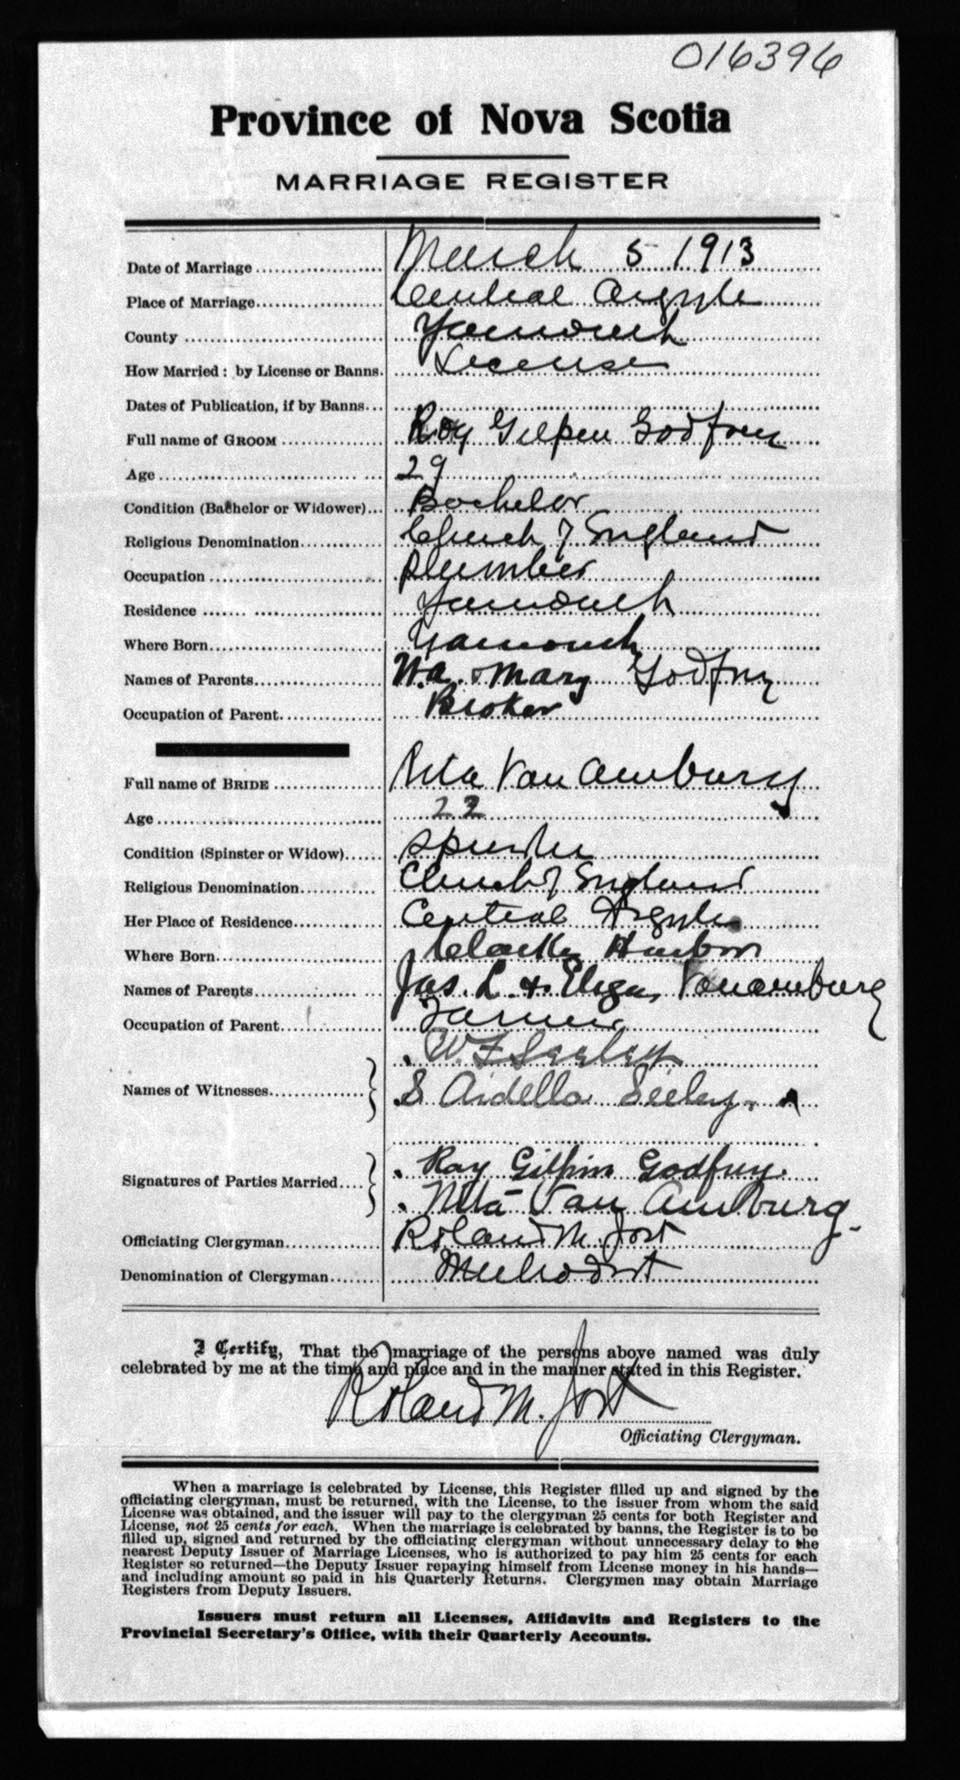 016396
Province of Nova Scotia
MARRIAGE REGISTER
Date of Marriage March 5 1913
Place of Marriage Central Argyle
County Yarmouth
How Married: by License or Banns. License
Dates of Publication, if by Banns
Full name of GROOM Roy Gilpen Godfrey
Age 29
Condition (Bachelor or Widower) Bachelor
Religious Denomination Church of England
Occupation Plumber
Residence Yarmouth
Where Born Yarmouth
Names of Parents W.a. & Mary Godfrey
Occupation of Parent Broker
Full name of BRIDE Van Amburg
Age 22
Condition (Spinster or Widow) Spinster
Religious Denomination Church of England
Her Place of Residence Central Argyle
Where Born Clarks Harbor
Names of Parents Jas. L. & Eliza Vanamburg
Occupation of Parent Farmer
W. F Seeley
Names of Witnesses S Aidella Seeley.
Signatures of Parties Married Roy Gilpin Godfrey.
Van Amburg
Officiating Clergyman Roland M. Jost
Denomination of Clergyman Methodist
I Certify, That the marriage of the persons above named was duly
celebrated by me at the time and place and in the manner stated in this Register.
Roland M. Jost
Officiating Clergyman.
When a marriage is celebrated by License, this Register filled up and signed by the
officiating clergyman, must be returned, with the License, to the issuer from whom the said
License was obtained, and the issuer will pay to the clergyman 25 cents for both Register and
License, not 25 cents for each. When the marriage is celebrated by banns, the Register is to be
filled up, signed and returned by the officiating clergyman without unnecessary delay to the
nearest Deputy Issuer of Marriage Licenses, who is authorized to pay him 25 cents for each
Register so returned—the Deputy Issuer repaying himself from License money in his hands—
and including amount so paid in his Quarterly Returns. Clergymen may obtain Marriage
Registers from Deputy Issuers.
Issuers must return all Licenses, Affidavits and Registers to the
Provincial Secretary's Office, with their Quarterly Accounts.